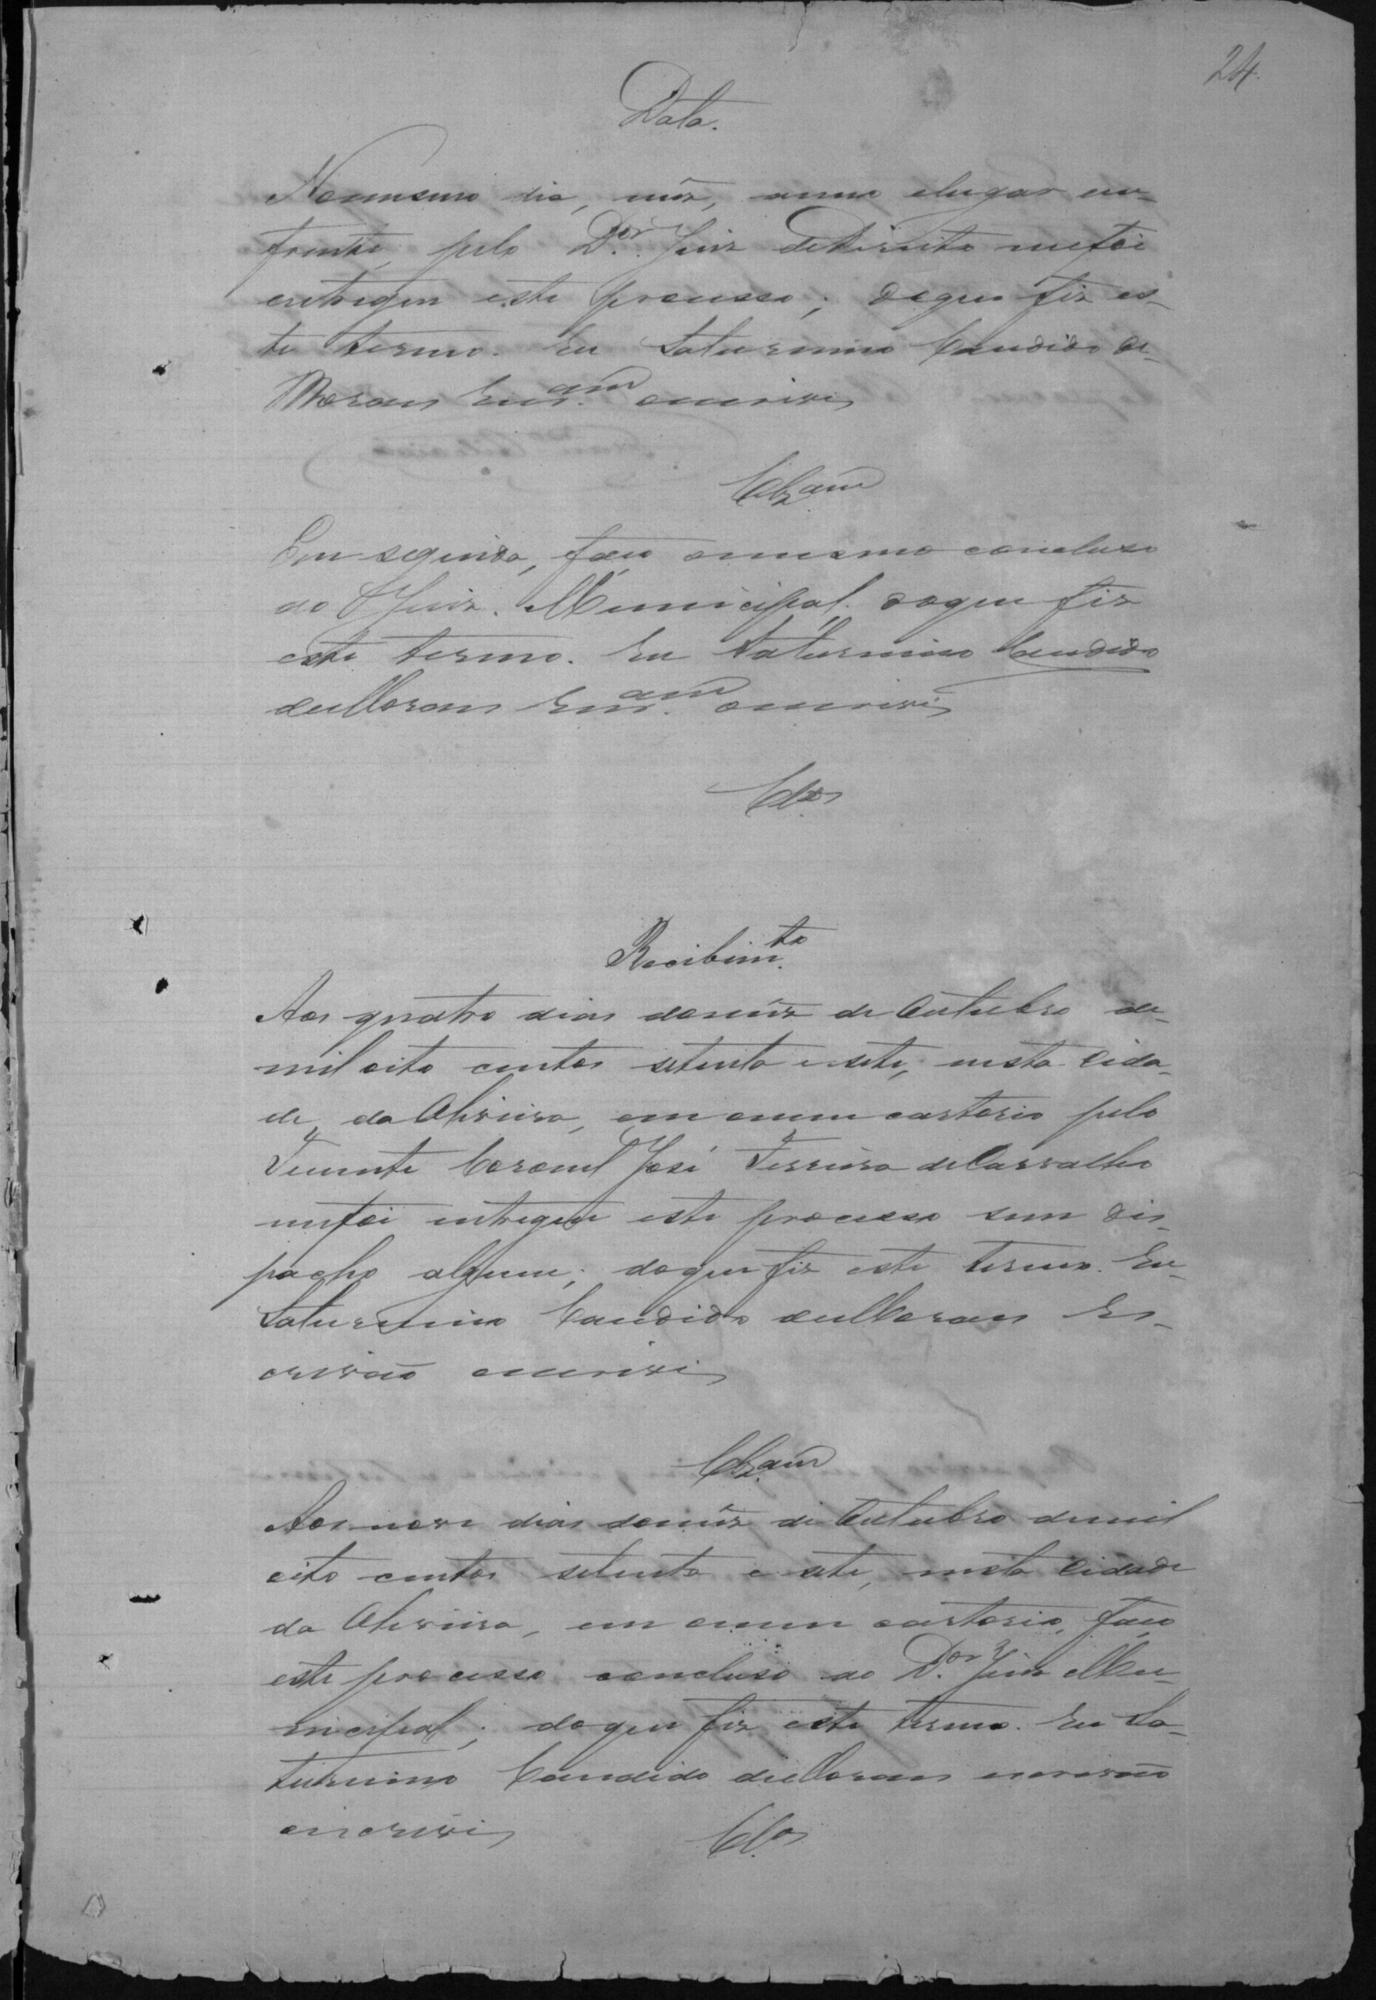 24.
Data.
No mesmo dia, mêz, anno e lugar em-
frente, pelo D.or Juiz de Direito me foi
entregue este processo; do que fiz es-
te termo. Eu Saturnino Candido de-
Moraes Escr.am o escrivi
Clz.am
Em seguida, faço o mesmo concluso
ao Juiz Municipal do que fiz
este termo. Eu Saturnino Candido
de Moraes Escr.am o escrivi
Clos
Recibim.to
Aos quatro dias do mêz de Outubro de-
mil oito centos setenta e sete, nesta cida-
de da Oliveira, em o meu cartorio pelo
Tenente Coronel José Ferreira de Carvalho
me foi entregue este processo sem dis-
pacho algum; do que fiz este termo. Eu
Saturnino Candido de Moraes Es-
crivão o escrivi
Clz.am
Aos nove dias do mêz de Outubro de mil
oito centos setenta e sete, nesta cidade
da Oliveira, em o meu cartorio, faço
este processo concluso ao D.or Juiz Mu-
nicipal; do que fiz este termo. Eu Sa-
turnino Candido de Moraes escrivão
o escrivi
Cl.os